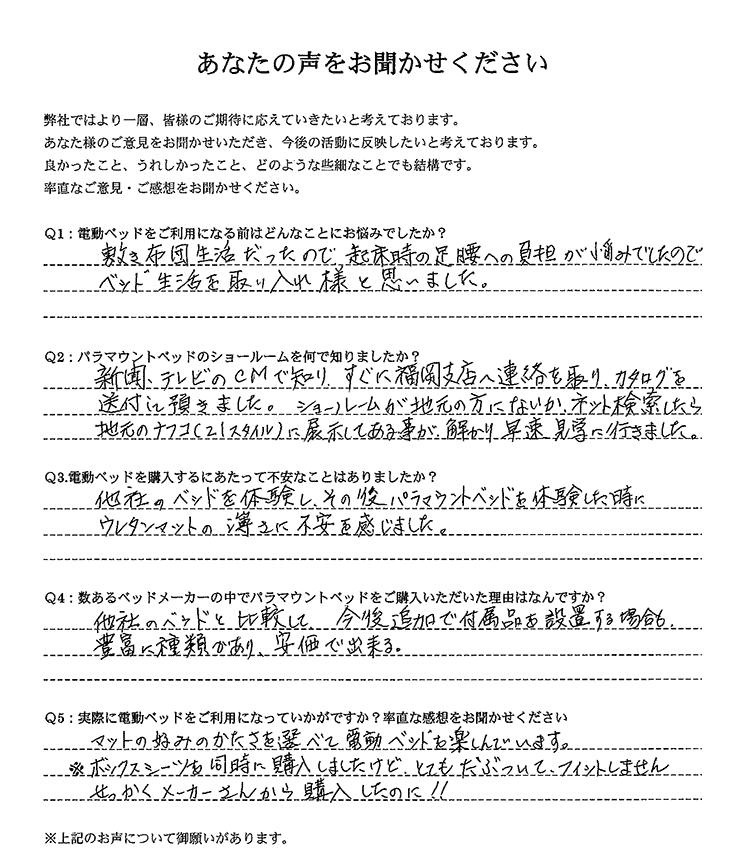 あなたの声をお聞かせください
弊社ではより一層、皆様のご期待に応えていきたいと考えております。
あなた様のご意見をお聞かせいただき、今後の活動に反映したいと考えております。
良かったこと、うれしかったこと、どのような些細なことでも結構です。
率直なご意見・ご感想をお聞かせください。
Q1：電動ベッドをご利用になる前はどんなことにお悩みでしたか？
敷き布団生活だったので、起床時の足腰への負担が悩みでしたので
ベッド生活を取り入れ様と思いました。
Q2：パラマウントベッドのショールームを何で知りましたか？
新聞、テレビのCMで知り、すぐに福岡支店へ連絡を取り、カタログを
送付に預きました。ショールームが地元の方にないか、ネット検索したら
地元のナフコ(21スタイル)に展示してある事が、解かり早速見学に行きました。
Q3.電動ベッドを購入するにあたって不安なことはありましたか？
他社のベッドを体験し、その後パラマウントベッドを体験した時に
ウレタンマットの薄さに不安を感じました。
Q4：数あるベッドメーカーの中でパラマウントベッドをご購入いただいた理由はなんですか？
他社のベッドと比較して、今後追加で付属品を設置する場合も、
豊富に種類があり、安価で出来る。
Q5：実際に電動ベッドをご利用になっていかがですか？率直な感想をお聞かせください
マットの好みのかたさを選べて電動ベッドを楽しんでいます。
※ボックスシーツを同時に購入しましたけど、とてもだぶついて、フィットしません
せっかくメーカーさんから購入したのに!!
※上記のお声について御願いがあります。